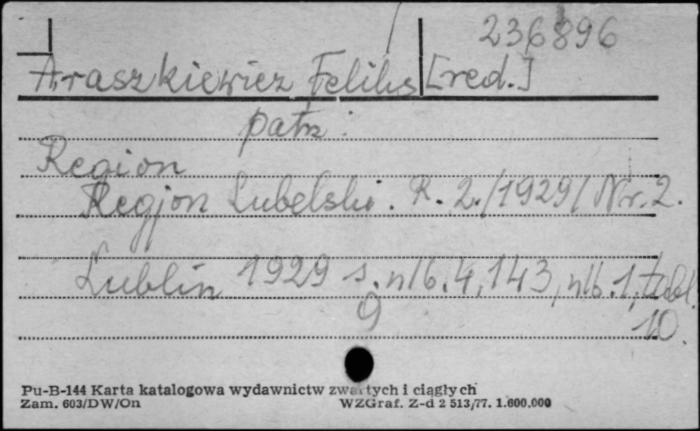 236896
Araszkiewicz Feliks [red.]
patrz:
Region
Regjon Lubelski. R. 2./1929/ Nr. 2.
Lublin 1929 s. nlb. 4, 143, nlb. 1, tabl.
9 10.
Pu-B-144 Karta katalogowa wydawnictw zwartych i ciągłych
Zam. 603/DW/On WZGraf. Z-d 2 513/77. 1.600.000